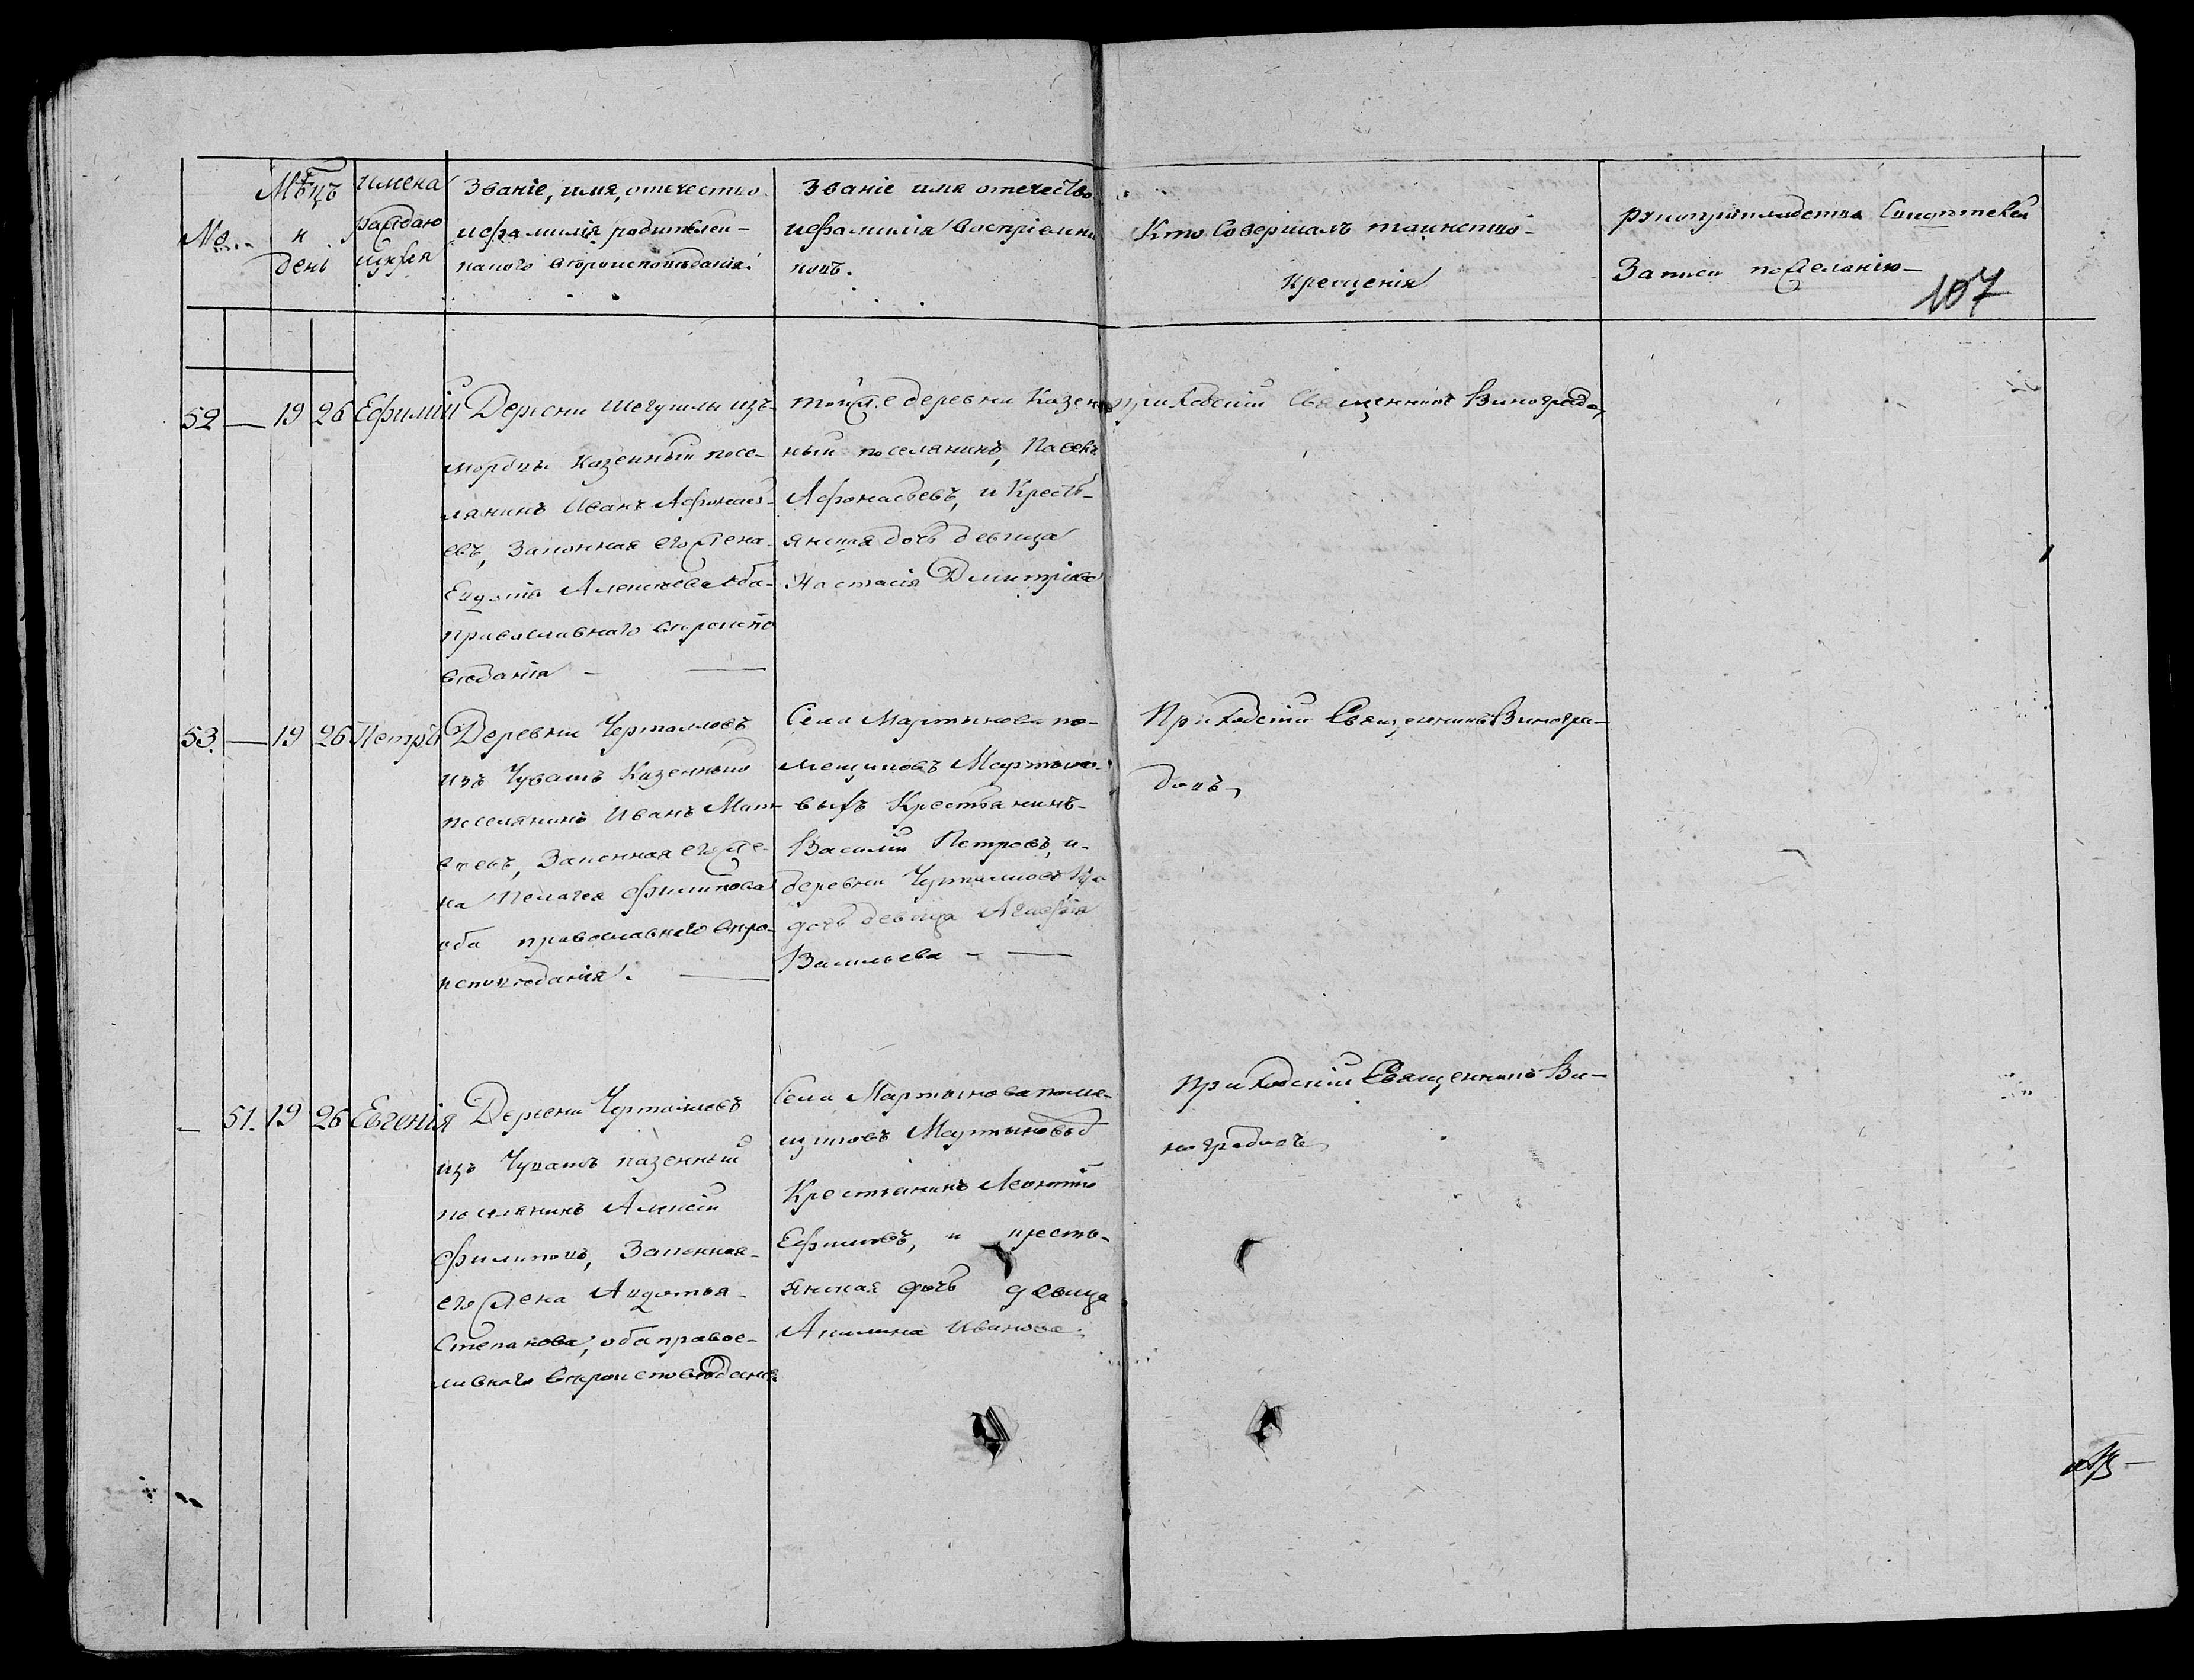 №
Мѣцъ
и
день
имена
раждаю
щихся
Званіе, имя, отечество
и фамилія родителей –
какого вѣроисповѣданія.
Званіе имя отечество
и фамилія воспріемни
ковъ.
Кто Совершалъ таинство –
Крещенія
рукоприкладства Свидѣтелей
Записи по желанію –
107
52 — 19 26 Ефимій
Деревни
изъ
мордвы казенный посе-
лянинъ Иванъ Афонась-
евъ, Законная его жена
Алексѣева оба-
православнаго вѣроиспо
вѣданія —
той же деревни Казен
ный поселянинъ, Павелъ
Афонасьевъ, и Кресть-
янская дочь девица
Настасія Дмитріева
приходскій Священникъ Виноградо
53. — 19 26 Петръ
Деревни
изъ Чувашъ Казенный
поселянинъ Иванъ Мат-
вѣевъ, Законная его же-
на Пелагея Филипова
оба православнаго вѣро-
исповѣданія. —
Села Мартынова по-
мещиковъ Мартыно-
выхъ Крестьянинъ-
Василій Петровъ, и-
деревни
дочь девица
Васильева — —
Приходскій Священникъ Виногра-
довъ,
— 51. 19 26 Евгенія
Деревни
изъ Чувашъ казенный
поселянинъ Алексій
Филиповъ, Законная-
его жена Авдотья-
Степанова, оба правос-
лавнаго вѣроисповѣданія.
Села Мартынова поме-
щиковъ Мартыновыхъ
Крестьянинъ Леонтій
Ефимовъ, и кресть-
янская дочь девица
Акилина Иванова.
Приходскій Священникъ Ви-
ноградовъ,